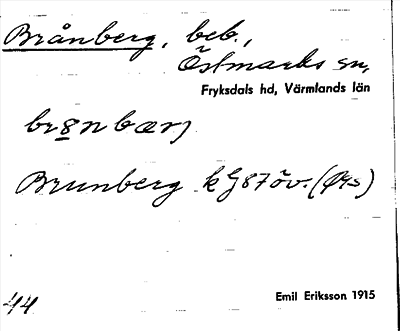 Brånberg, beb.,
Östmarks sn,
Fryksdals hd, Värmlands län
Brunberg kG87öv.
44
Emil Eriksson 1915